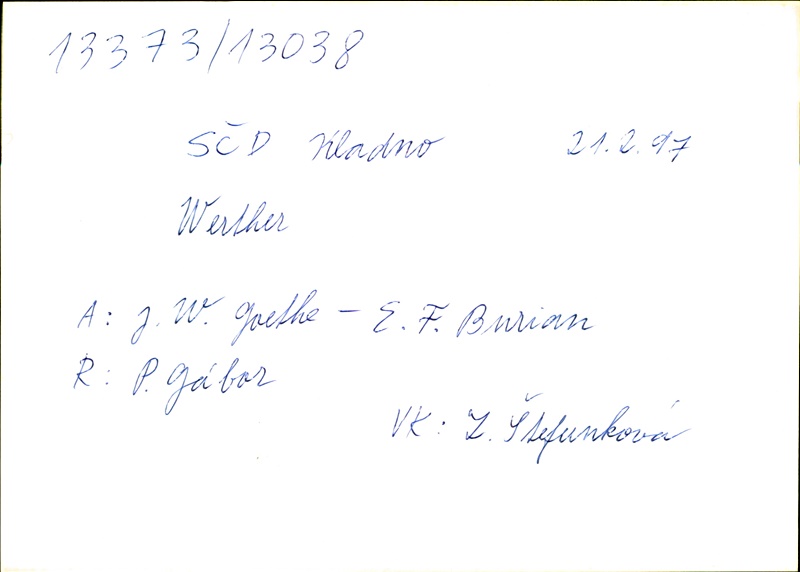 13373/13038
SČD Kladno 21.2.97
Werther
A: J. W. Goethe - E. F. Burian
R: P. Gábor
VK: Z. Štefunková